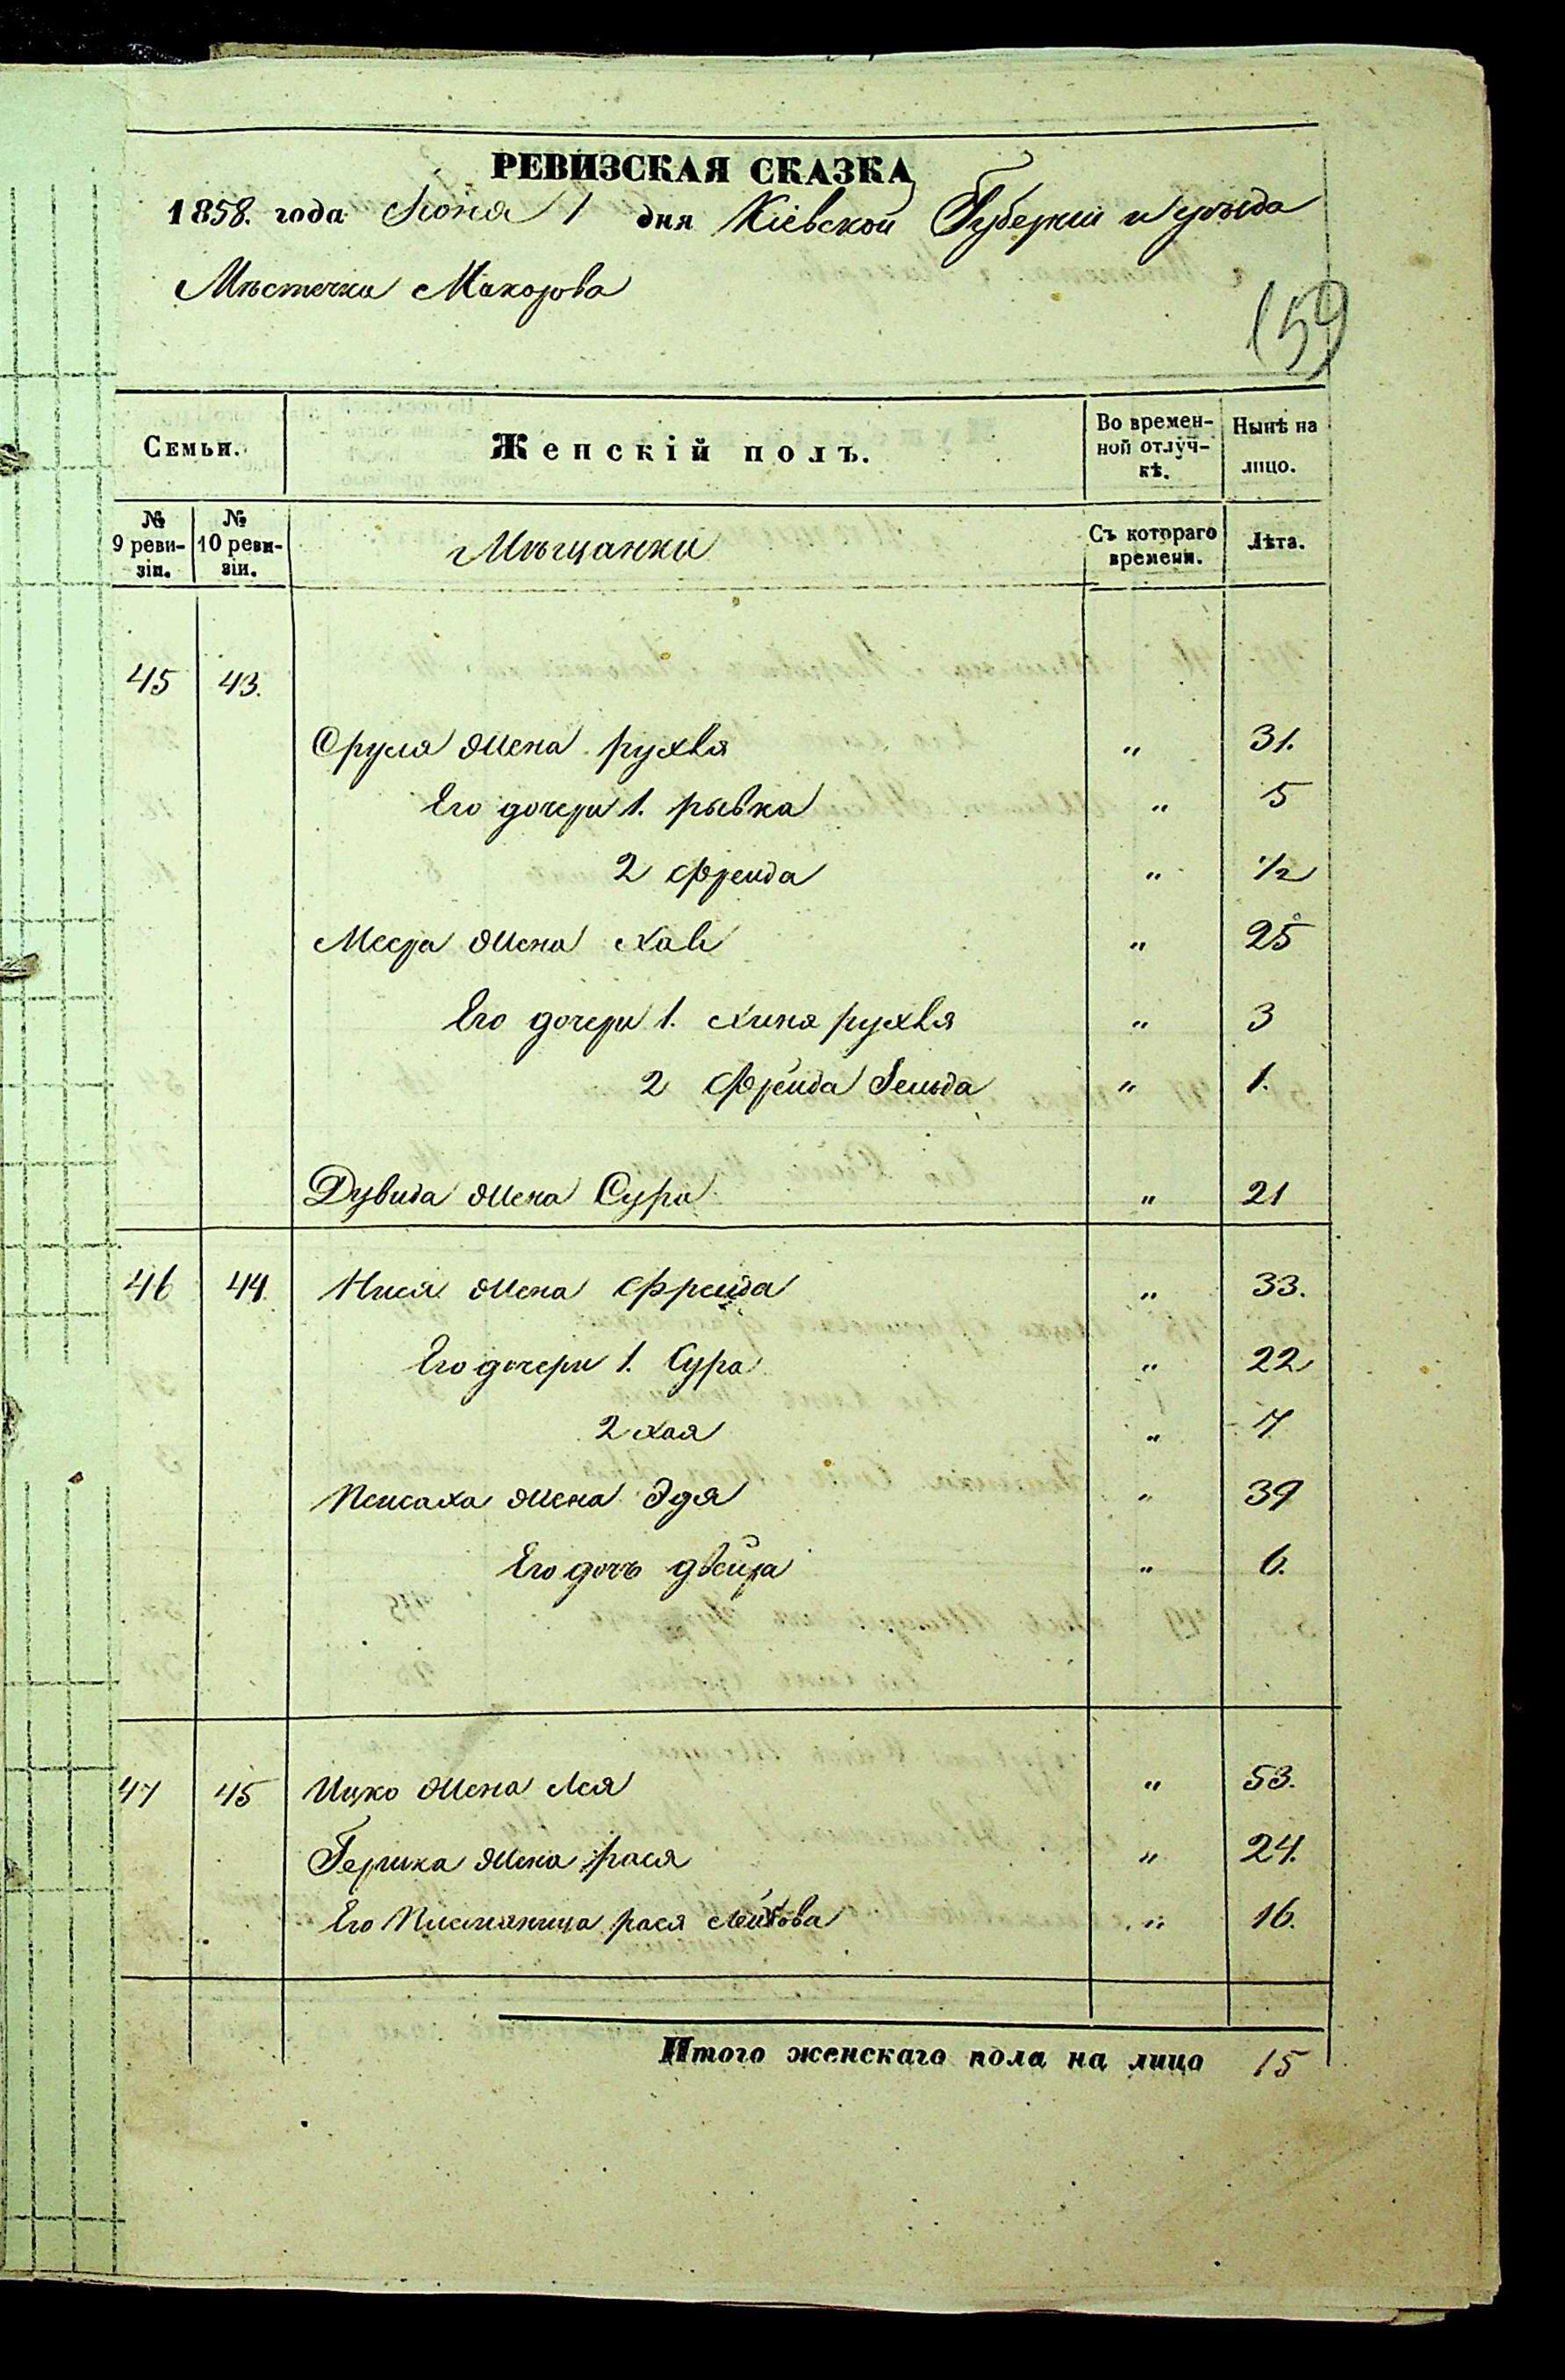 РЕВИЗСКАЯ СКАЗКА
1858. года Іюня 1 дня Кіевской Губерніи и уѣзда
Мѣстечка Макарова
159
Семьи. Женскій полъ. Во времен-ной отлуч-кѣ. Нынѣ на лицо.
№ 9 реви-зіи. № 10 реви-зіи. Мѣщанки Съ котораго времени. Лѣта.
45 43.
Сруля жена рухля " 31.
Его дочери 1. рывка " 5
2 Фрейда " 1/2
Меера жена Хаве " 25
Его дочери 1. Хиня рухля " 3
2 Фрейда Зельда " 1.
Дувида жена Сура " 21
46 44 Нися жена Фрейда " 33.
Его дочери 1. Сура " 22
2 хая " 7
Пейсаха жена Эдя " 39
Его дочь двейра " 6.
47 45 Ицко жена Лея " 53.
Гершка жена рася " 24.
Его Племяница рася Лейбова " 16.
Итого женскаго пола на лицо 15